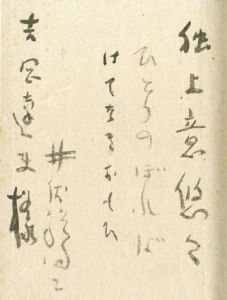 独上意悠々
ひとりのぼれば
はてなきおもひ
井伏鱒二
吉岡達夫様